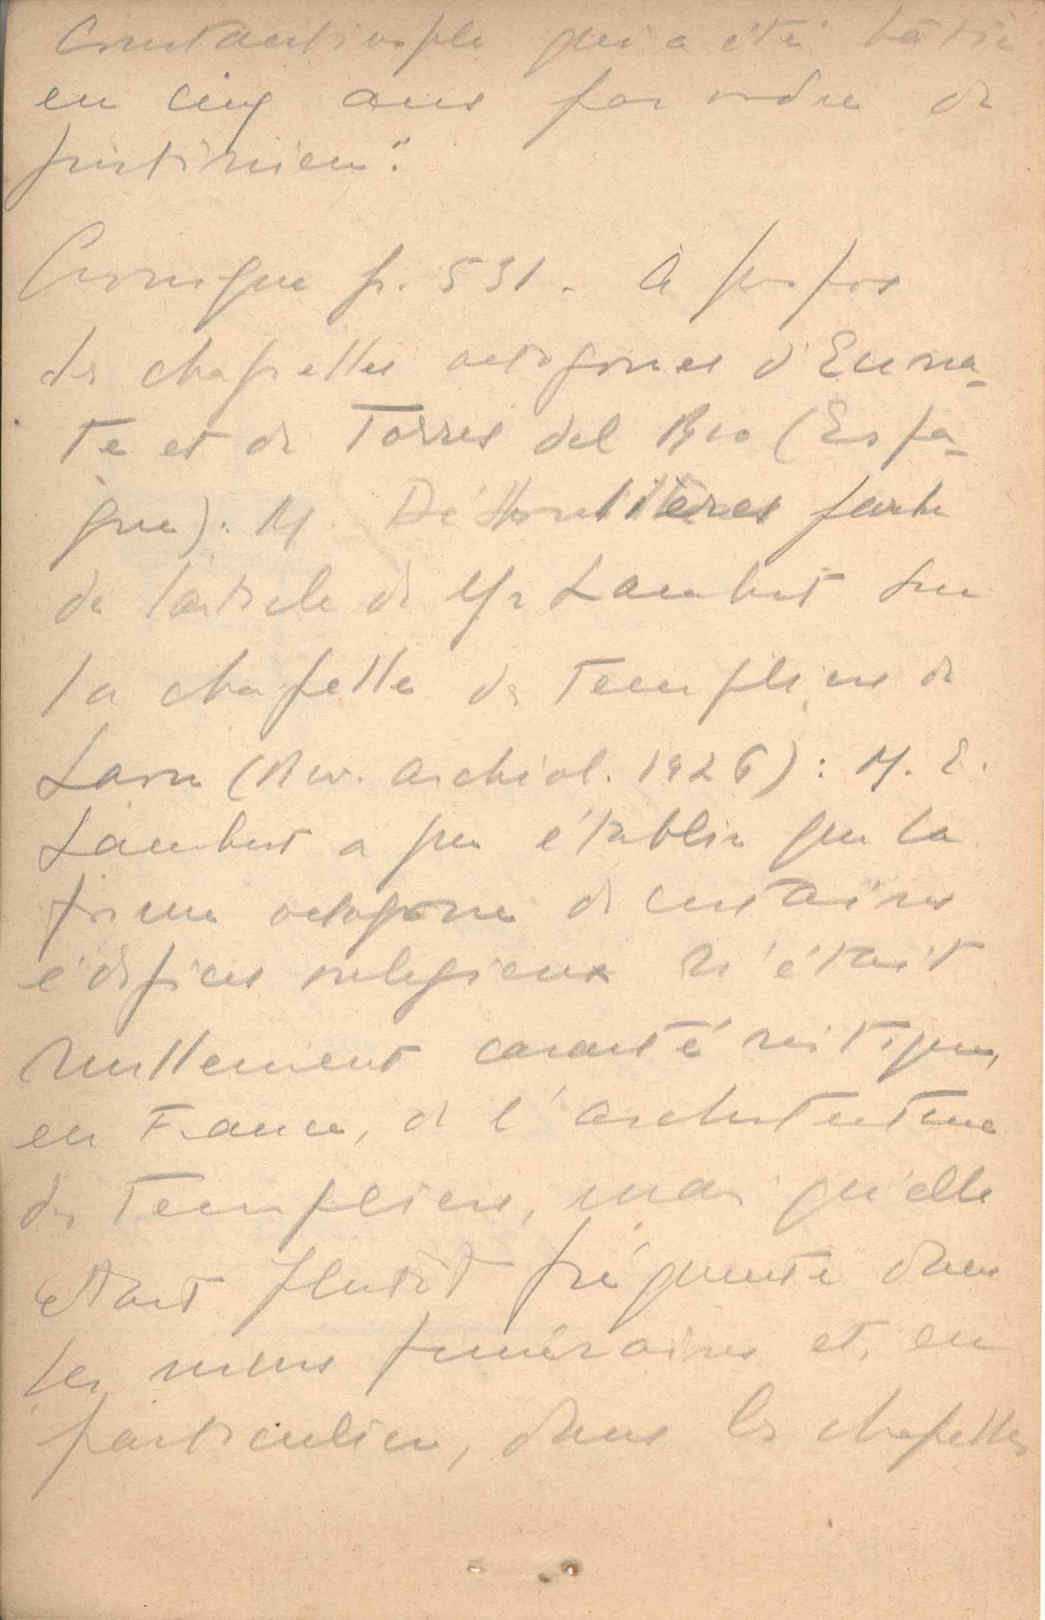 Constantinople qui a été bâtie
en cinq ans par ordre de
Justinien".
Cronique p. 531. A propos
des chapelles octogones d'Euna-
te et de Torres del Rio (Espa-
gne): M. Deshoulières parle
de l'article de Mr Lambert sur
la chapelle des Templiers de
Laon (Rev. archéol. 1926): M. E.
Lambert a pu établir que la
forme octogone de certains
édifices religieux n'était
nullement caractéristique,
en France, de l'architecture
des Templiers, mais qu'elle
était plutôt fréquente dans
les funéraires et, en
particulier, dans les chapelles